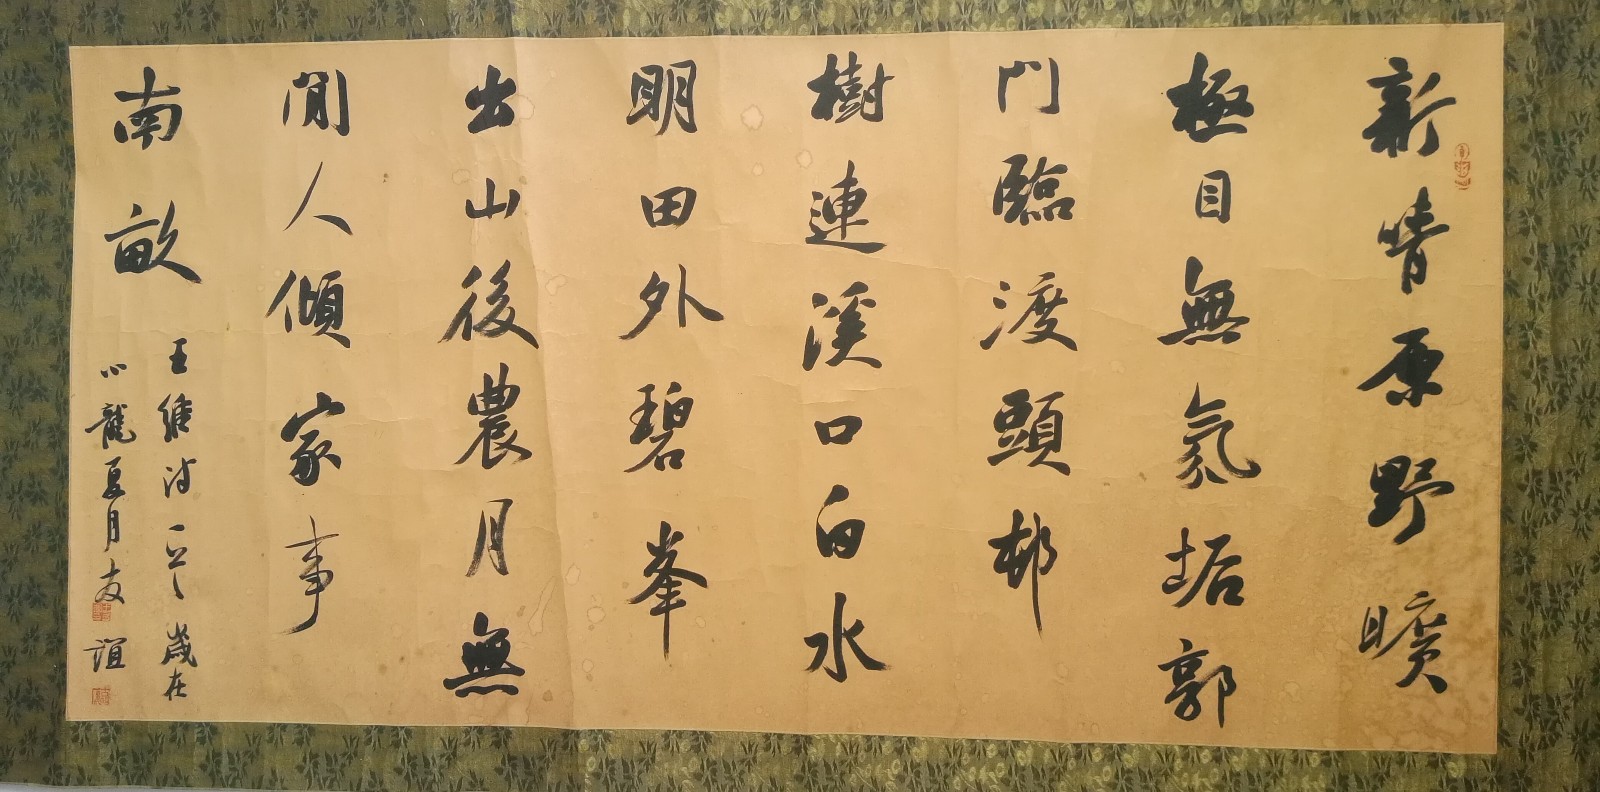 新晴原野曠
極目無氛垢郭
門臨渡頭邨
樹連溪口白水
明田外碧峯
出山後農月無
閒人傾家事
南畝
王維詩一首 歲在
小龍夏月友誼